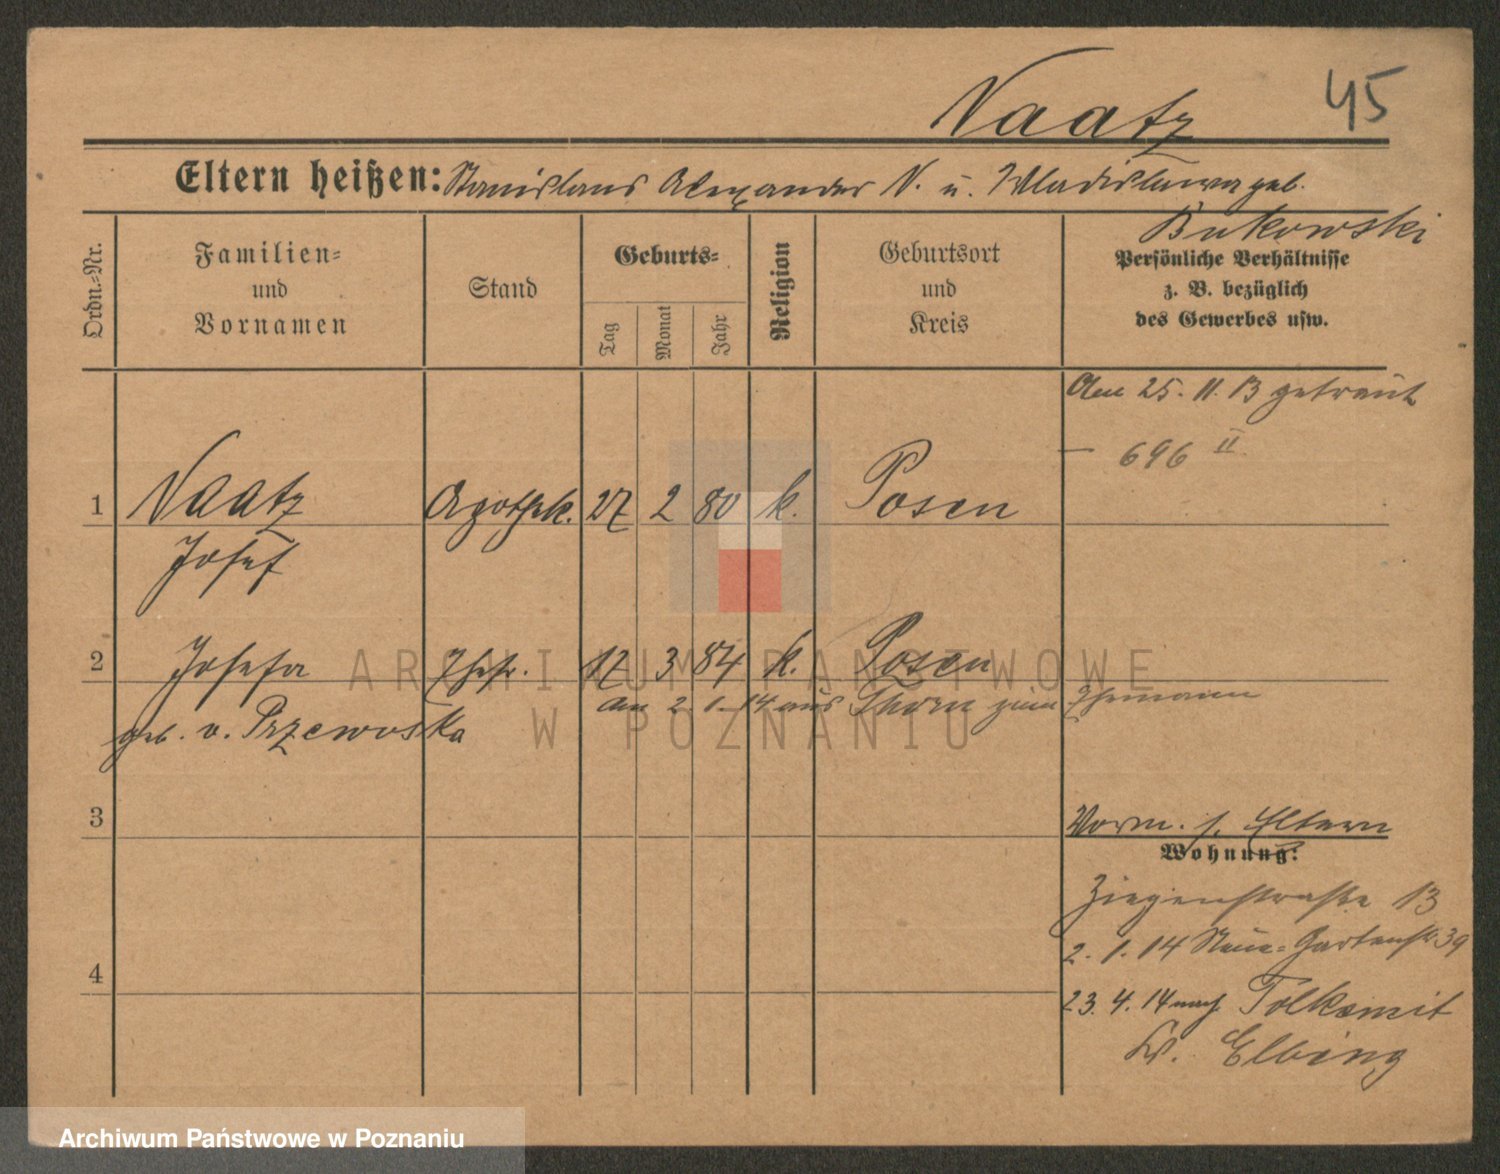 Naatz 45
Eltern heißen: Stanislaus Alexander N. u. Wladislawa geb.
Bukowski
Ordn.-Nr.
Familien-
und
Vornamen
Stand
Geburts-
Tag
Monat
Jahr
Religion
Geburtsort
und
Kreis
Persönliche Verhältnisse
z. B. bezüglich
des Gewerbes usw.
Am 25. 11. 13 getraut
— 696 II
1 Naatz Apothek. 27 2 80 k. Posen
Josef
2 Josefa Ehefr. 17 3 84 k. Posen
Am 2. 1. 14 aus Thorn zum Ehemann
geb. v. Przewoska
3
Vorm. s. Eltern
Wohnung:
Ziegenstraße 13
2. 1. 14 Neue-Gartenstr. 39
4
23. 4. 14 nach Tolkemit
Kr. Elbing
ARCHIWUM PAŃSTWOWE
W POZNANIU
Archiwum Państwowe w Poznaniu